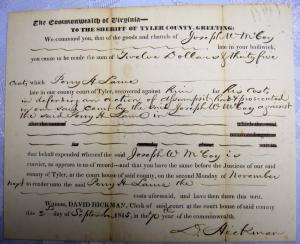 The Commonwealth of Virginia—
TO THE SHERIFF OF TYLER COUNTY, GREETING:
We command you, that of the goods and chattels of Joseph W McCoy
late in your bailiwick,
you cause to be made the sum of Twelve Dollars & thirty five
costs which Perry H. Lane
late in our county court of Tyler, recovered against him for his Costs
in defending an action of assumpsit had & prosecuted
in our said County by the said Joseph W McCoy against
the said Perry H Lane in
that behalf expended whereof the said Joseph W McCoy is
convict, as appears to us of record—and that you have the same before the Justices of our said
county of Tyler, at the court house of said county, on the second Monday of November
next to render unto the said Perry H. Lane the
costs aforesaid, and have then there this writ.
Witness, DAVID HICKMAN, Clerk of said court at the court house of said county
this 2 day of September 1845, in the 70th year of the commonwealth.
D Hickman